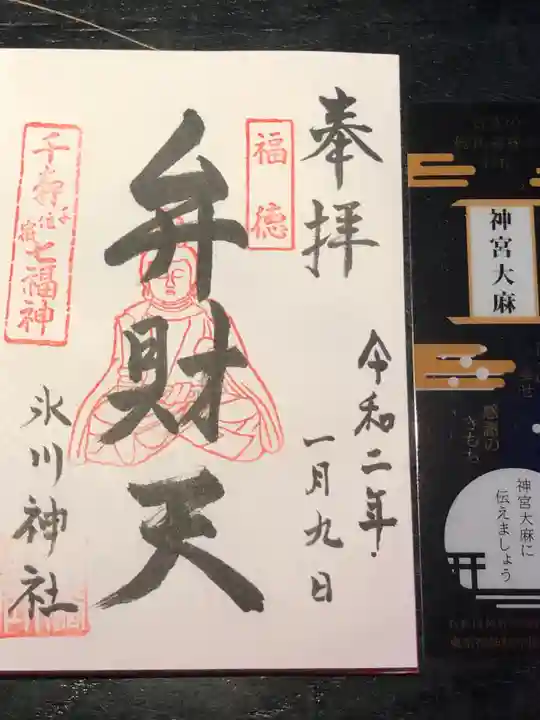 奉拝
令和二年
一月九日
福徳
弁財天
千寿七福神
氷川神社
神宮大麻
感謝の
きもち
神宮大麻に
伝えましょう